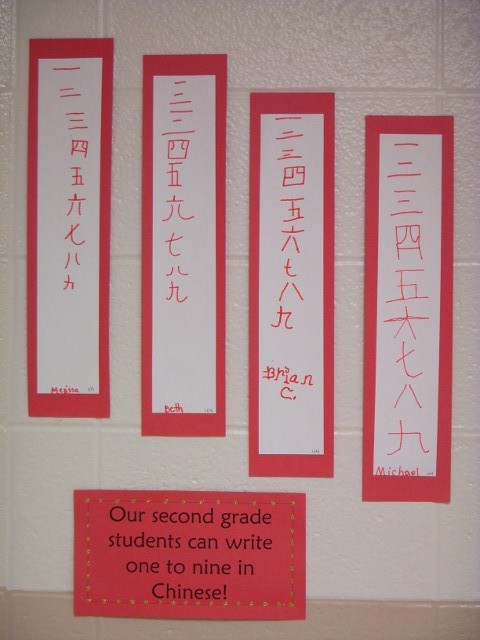 一二三四五六七八九
一二三四五六七八九
Beth
一二三四五六七八九
Brian
C.
一二三四五六七八九
Michael
Our second grade
students can write
one to nine in
Chinese!